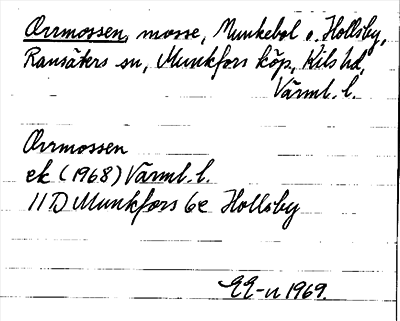 Orrmossen, mosse, Munkebol o. Hollsby,
Ransäters sn, Munkfors köp., Kils hd,
Värml. l.
Orrmossen
ek (1968) Värml. l.
11 D Munkfors 6e Hollsby
EE-n 1969.